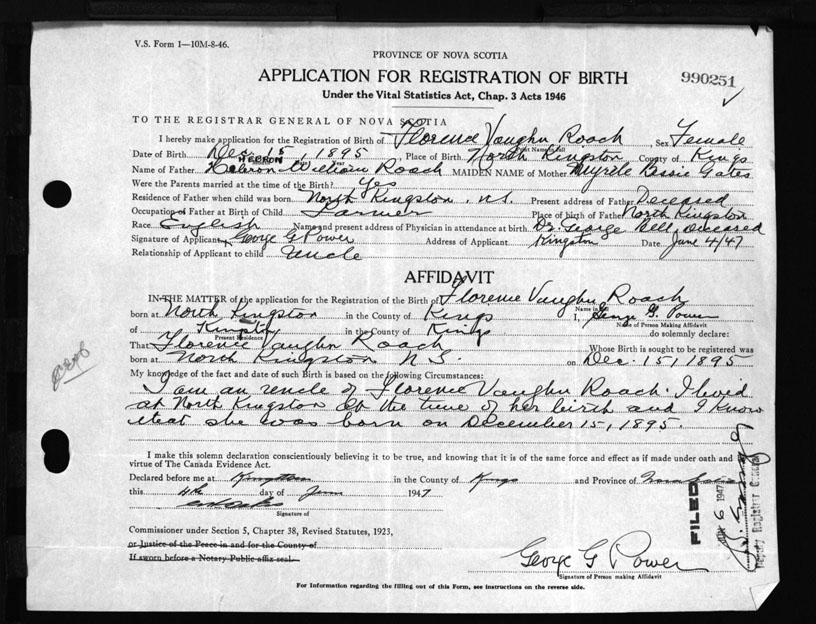 V.S. Form 1—10M-8-46.
PROVINCE OF NOVA SCOTIA
APPLICATION FOR REGISTRATION OF BIRTH
990251
Under the Vital Statistics Act, Chap. 3 Acts 1946
TO THE REGISTRAR GENERAL OF NOVA SCOTIA
I hereby make application for the Registration of Birth of Florence Vaughn Roach Sex Female
Date of Birth Dec. 15, 1895, Place of Birth North Kingston County of Kings
HEBRON
Name of Father Hebron William Roach MAIDEN NAME of Mother Myrtle Bessie Gates
Were the Parents married at the time of the Birth? Yes
Residence of Father when child was born North Kingston, N.S. Present address of Father Deceased
Occupation of Father at Birth of Child Farmer Place of birth of Father North Kingston
Race English Name and present address of Physician in attendance at birth Dr. George Bell, Deceased
Signature of Applicant George G Power Address of Applicant Kingston Date June 4/47
Relationship of Applicant to child Uncle
AFFIDAVIT
IN THE MATTER of the application for the Registration of the Birth of Florence Vaughn Roach
Name in full
born at North Kingston in the County of Kings I, George G. Power
Name of Person Making Affidavit
of Kingston in the County of Kings do solemnly declare:
Present Residence
That Florence Vaughn Roach Whose Birth is sought to be registered was
born at North Kingston N.S. on Dec. 15, 1895
My knowledge of the fact and date of such Birth is based on the following Circumstances:
I am an uncle of Florence Vaughn Roach. I lived
at North Kingston at the time of her birth and I know
that she was born on December 15, 1895.
I make this solemn declaration conscientiously believing it to be true, and knowing that it is of the same force and effect as if made under oath and
virtue of The Canada Evidence Act.
Declared before me at Kingston in the County of Kings and Province of Nova Scotia
this 4th day of June 1947
Signature of
Commissioner under Section 5, Chapter 38, Revised Statutes, 1923,
or Justice of the Peace in and for the County of
If sworn before a Notary Public affix seal.
FILED
6 1947
Deputy Registrar General
George G Power
Signature of Person making Affidavit
For Information regarding the filling out of this Form, see instructions on the reverse side.